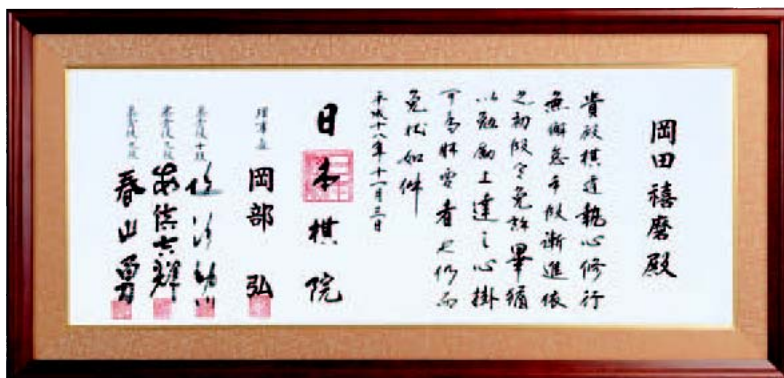 岡田禧磨殿
貴殿棋道執心修行
無懈怠手段漸進依
之初段令免許畢猶
以勉励上達之心掛
可為肝要者也仍而
免状如件
平成十八年十一月三日
日本棋院
理事長 岡部弘
審査役十段
審査役九段
審査役九段 春山勇